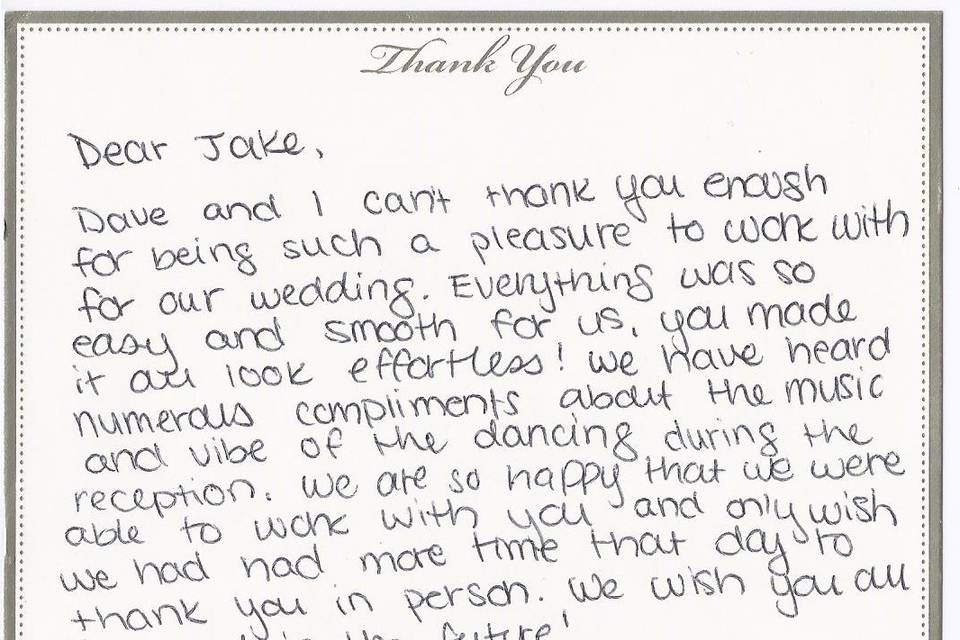 Thank You
Dear Jake,
Dave and I can't thank you enough
for being such a pleasure to work with
for our wedding. Everything was so
easy and smooth for us, you made
it all look effortless! We have heard
numerous compliments about the music
and vibe of the dancing during the
reception. We are so happy that we were
able to work with you and only wish
we had had more time that day to
thank you in person. We wish you all
in the future!